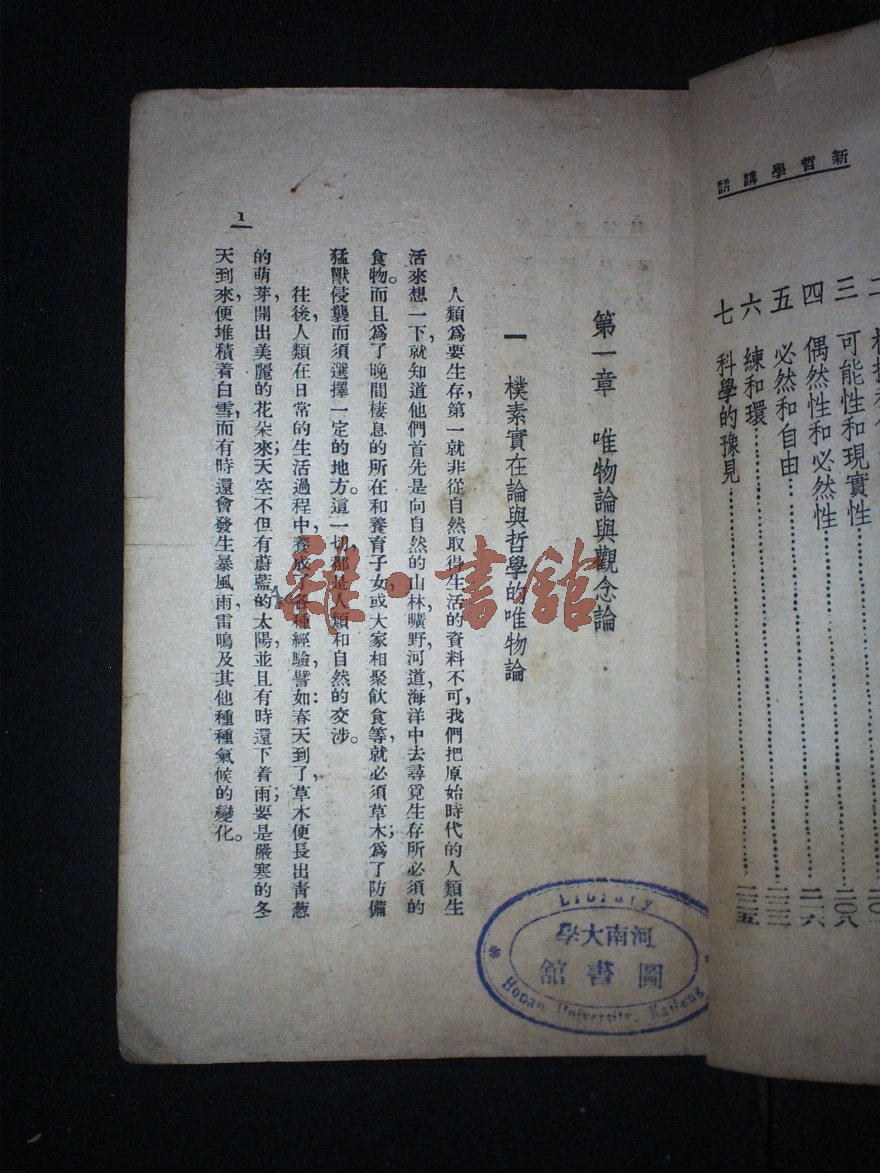 新哲學講話
三 可能性和現實性……二〇八
四 偶然性和必然性……二一六
五 必然和自由……二二二
六 練和環……二三二
七 科學的豫見……二三五
第一章 唯物論與觀念論
一 樸素實在論與哲學的唯物論
人類爲要生存，第一就非從自然取得生活的資料不可，我們把原始時代的人類生
活來想一下，就知道他們首先是向自然的山林，曠野，河道，海洋中去尋覓生存所必須的
食物。而且爲了晚間棲息的所在和養育子女，或大家相聚飲食等，就必須草木；爲了防備
猛獸侵襲而須選擇一定的地方。這一切，都是人類和自然的交涉。
往後，人類在日常的生活過程中，養成了各種經驗，譬如：春天到了，草木便長出青葱
的萌芽，開出美麗的花朵來；天空不但有蔚藍的太陽，並且有時還下着雨；要是嚴寒的冬
天到來，便堆積着白雪，而有時還會發生暴風，雨，雷鳴及其他種種氣候的變化。
1
雜·書館
Library
河南大學
圖書館
Honan University, Kaifeng